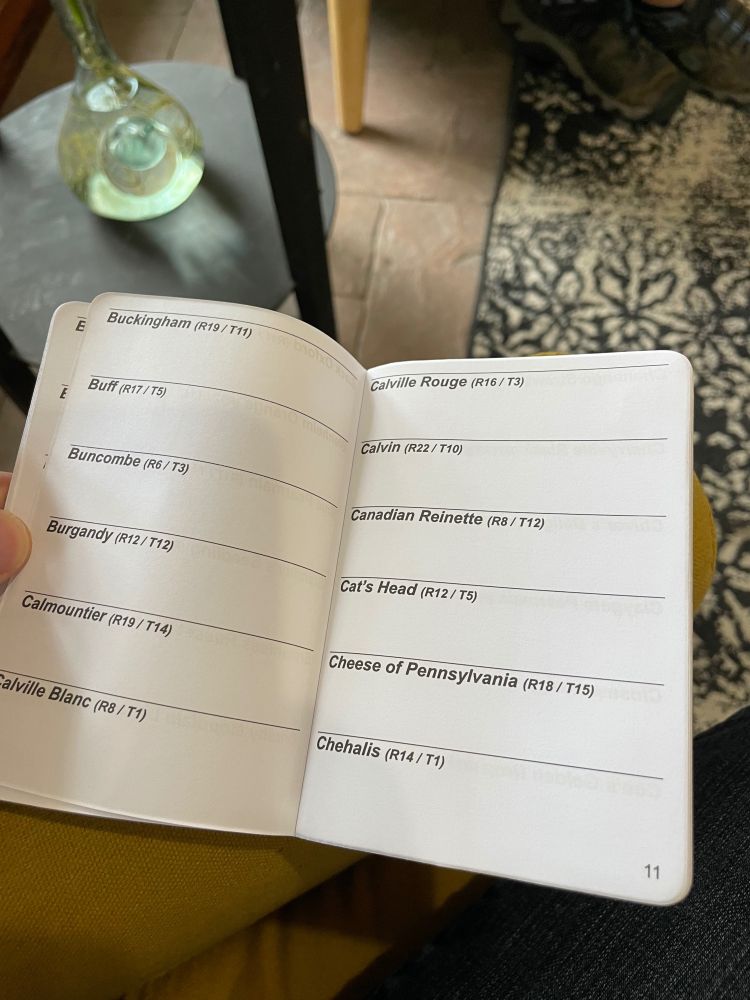 Buckingham (R19 / T11)
Buff (R17 / T5)
Buncombe (R6 / T3)
Burgandy (R12 / T12)
Calmountier (R19 / T14)
Calville Blanc (R8 / T1)
Calville Rouge (R16 / T3)
Calvin (R22 / T10)
Canadian Reinette (R8 / T12)
Cat's Head (R12 / T5)
Cheese of Pennsylvania (R18 / T15)
Chehalis (R14 / T1)
11